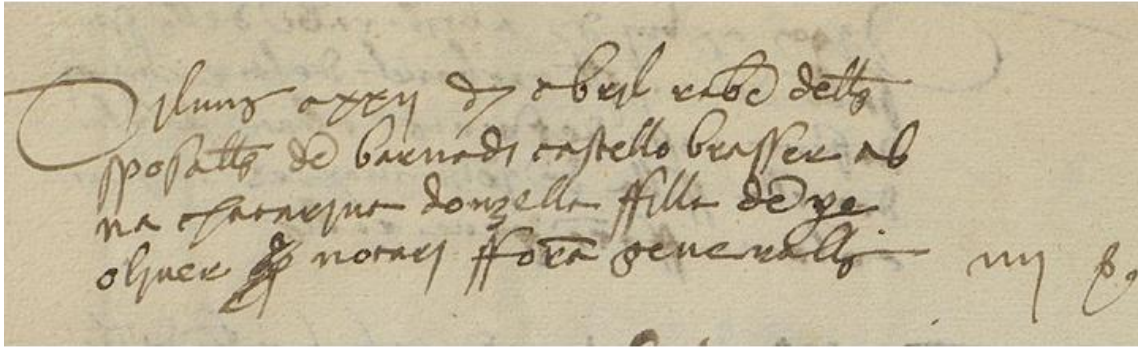 Dilluns a xxii de abril rebe dells
sposalls de barnadi castello brasser ab
na chatarina donzella filla de pe
oliver notari ffora generalls iiii s.